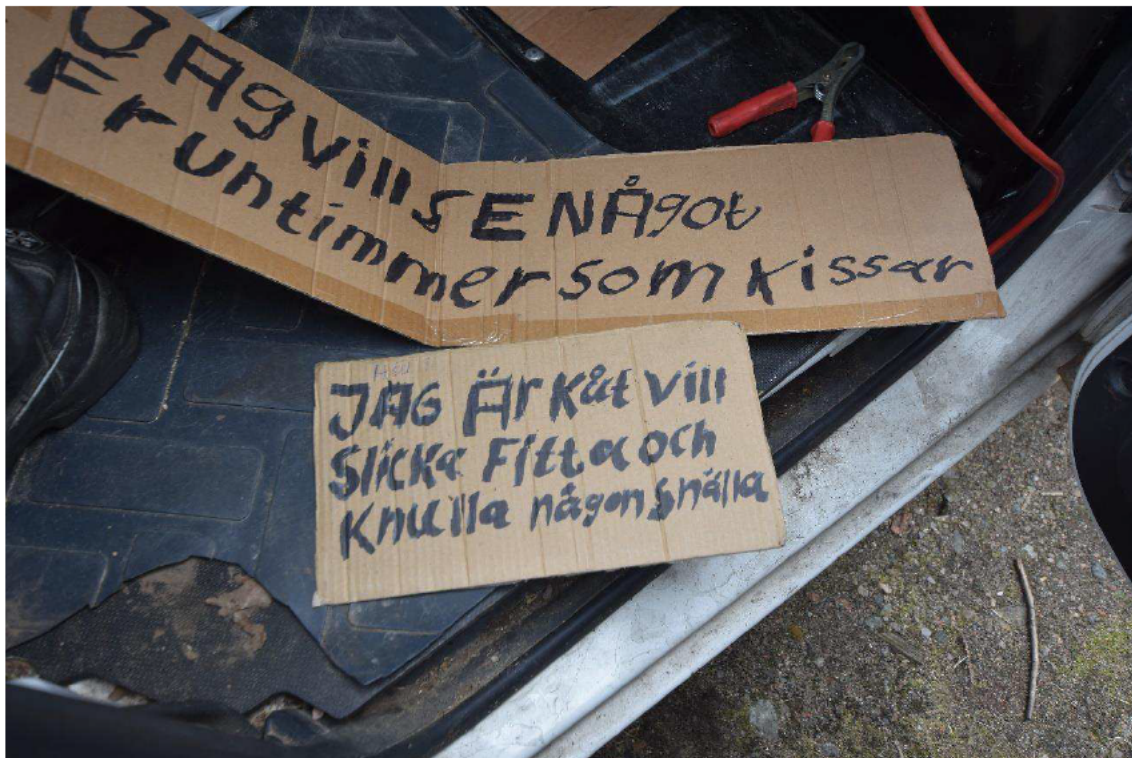 JAg vill SE NÅgot
Fruntimmer som kissar
JAG Är Kåt vill
Slicka Fitta och
Knulla någon Snälla